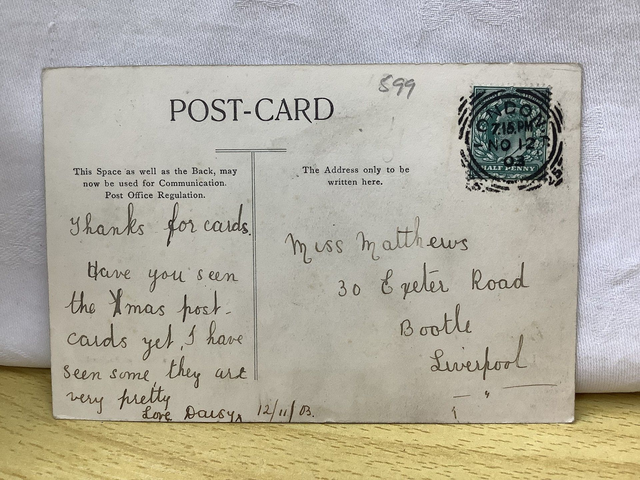 599
POST-CARD
This Space as well as the Back, may
now be used for Communication.
Post Office Regulation.
The Address only to be
written here.
7.15.PM
NO 12
03
HALFPENNY
Thanks for cards.
Have you seen
the Xmas post-
cards yet, I have
seen some, they are
very pretty
Love Daisy 12/11/03.
Miss Matthews
30 Exeter Road
Bootle
Liverpool